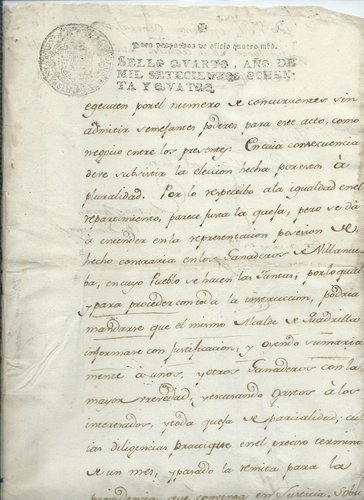 Para despachos de oficio quatro mrs.
SELLO QUARTO, AÑO DE
MIL SETECIENTOS OCHEN-
TA Y QUATRO.
egecuten por el numero de concurrentes sin
admitir semejantes poderes para este acto, como
negocio entre los presentes: En cuia consecuencia
deve subsistir la eleccion hecha por estos à
pluralidad. Por lo respectibo ala igualdad en el
repartimiento, parece justa la quexa, pero se dà
à entender en la representacion posesion de
hecho contraria en los Ganaderos de Villanue
ba, en cuyo Pueblo se hacen las Juntas; por lo qual
y para proceder con toda la instruccion, podria
mandarse que el mismo Alcalde de Quadrilla
informase con justificacion, y oyendo sumaria
mente à unos, y otros Ganaderos con la
mayor brevedad, y escusando gastos à los
interesados, y toda quexa de parcialidad; cu
ias diligencias practique en el preciso termino
de un mes, y pasado la remita para la
providencia que convenga en Justicia.